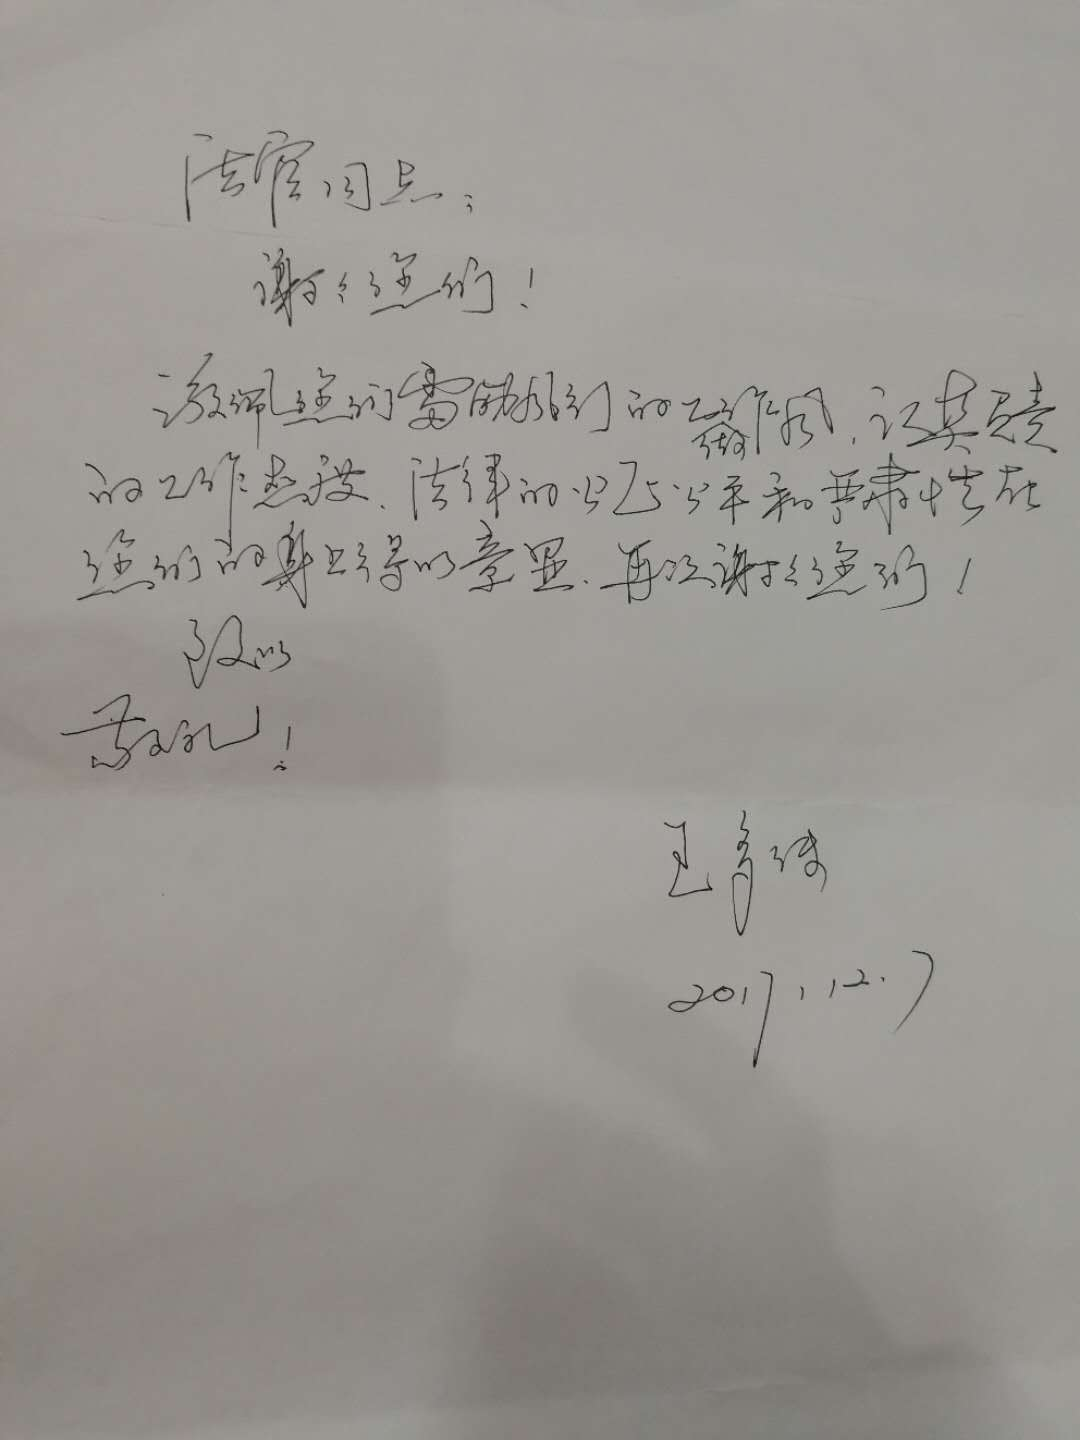 法官同志：
谢谢您们！
敬佩您们雷励风行的工作作风，认真负责
的工作态度，法律的公正公平和严肃性在
您们的身上得以章显，再次谢谢您们！
致以
敬礼！
王
2017.12.7